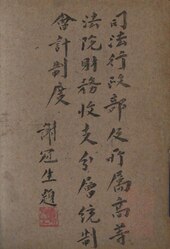 司法行政部及所属高等
法院財務收支分層統制
會計制度
謝冠生題